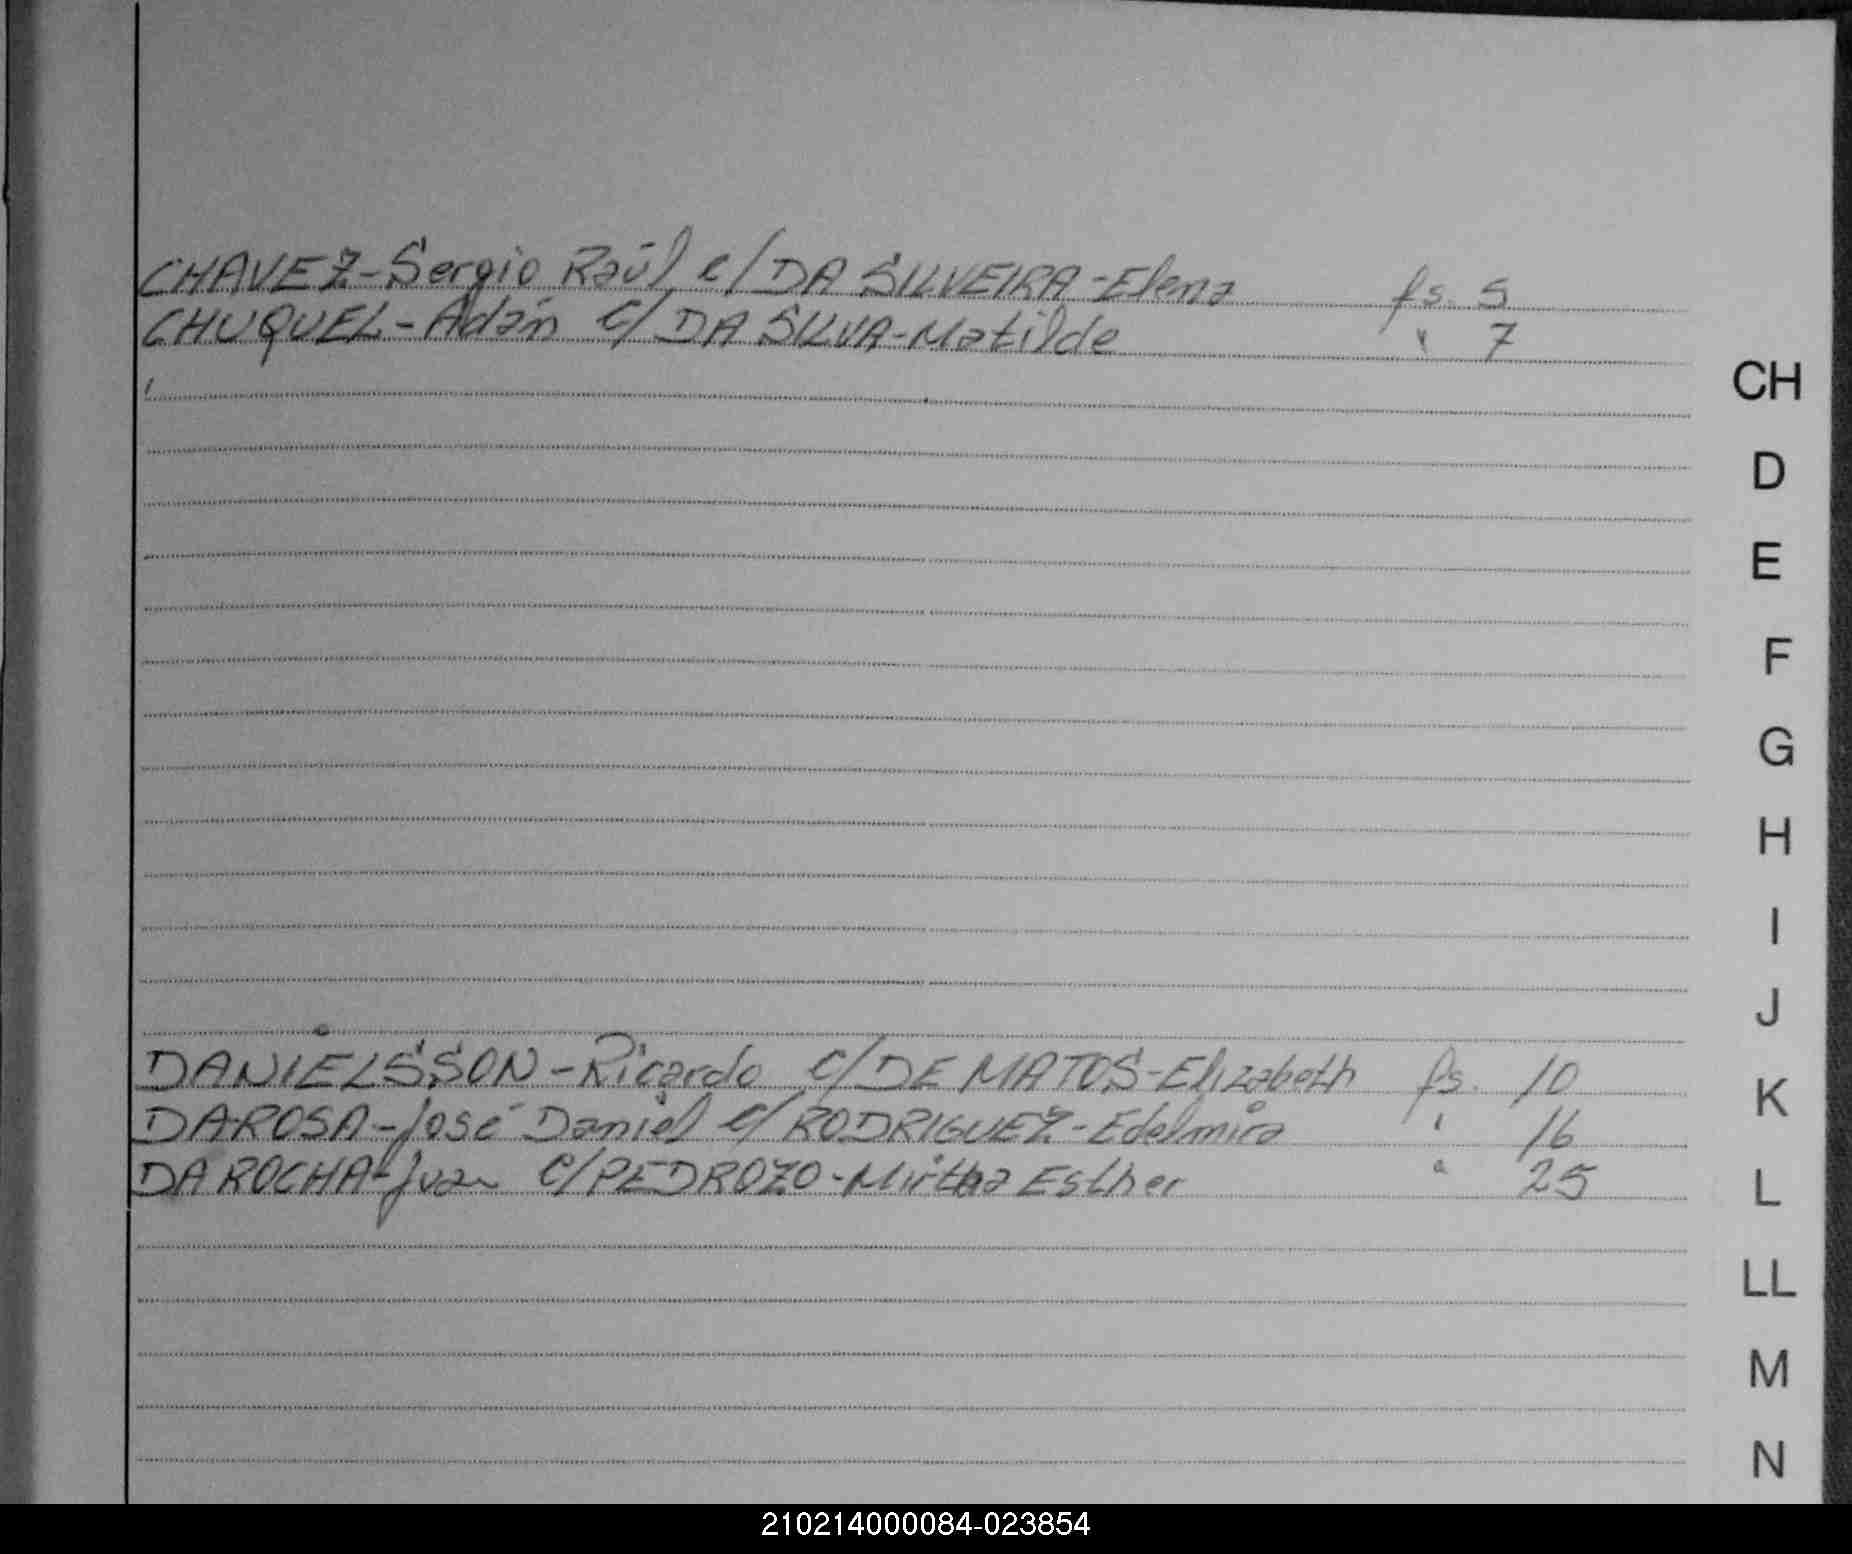 CHAVEZ-Sergio Raúl c/ DA SILVEIRA-Elena fs. 5
CHUQUEL-Adán c/ DA SILVA-Matilde " 7
CH
D
E
F
G
H
I
J
DANIELSSON-Ricardo c/ DE MATOS-Elizabeth fs. 10
K
DA ROSA-José Daniel c/ RODRIGUEZ-Edelmira " 16
DA ROCHA-Juan c/ PEDROZO-Mirtha Esther " 25
L
LL
M
N
210214000084-023854